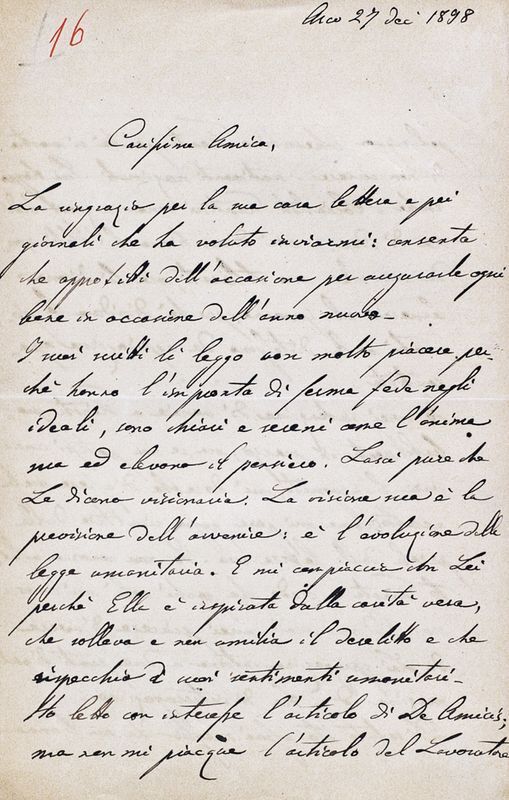 16
Arco 27 dec 1898
Carissima Amica,
La ringrazio per la sua cara lettera e pei
giornali che ha voluto inviarmi: consenta
che approfitti dell'occasione per augurarle ogni
bene in occasione dell'anno nuovo.
I suoi scritti li leggo con molto piacere per-
chè hanno l'impronta di ferma fede negli
ideali, sono chiari e sereni come l'anima
sua ed elevano il pensiero. Lasci pure che
Le dicano visionaria. La visione sua è la
previsione dell'avvenire: è l'evoluzione delle
legge umanitaria. E mi compiaccio con Lei
perchè Ella è inspirata dalla carità vera,
che solleva e non umilia il derelitto e che
rispecchia i suoi sentimenti umanitari.
Ho letto con interesse l'articolo di De Amicis;
ma non mi piacque l'articolo del Lavoratore